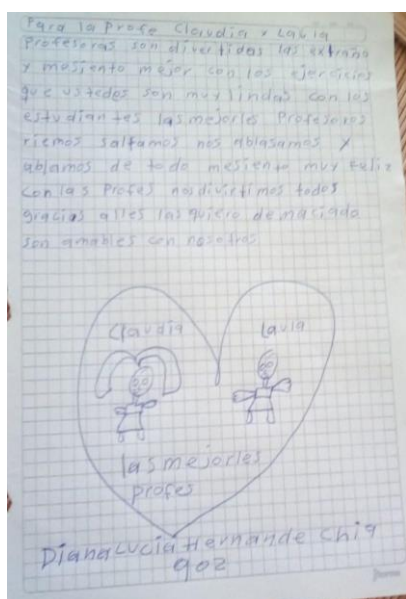 Para la Profe Claudia y Lavia
Profesoras son divertidas las extraño
y mesiento mejor con los ejercicios
que ustedes son muy lindas con los
estudiantes las mejorles Profesoros
riemos saltamos nos ablasamos y
ablamos de todo mesiento muy feliz
con las Profes nos divirtimos todos
gracias alles las quiero demaciado
son amables con nosotros
Claudia
Lavia
las mejorles
profes
Diana Lucía Hernande Chia
902